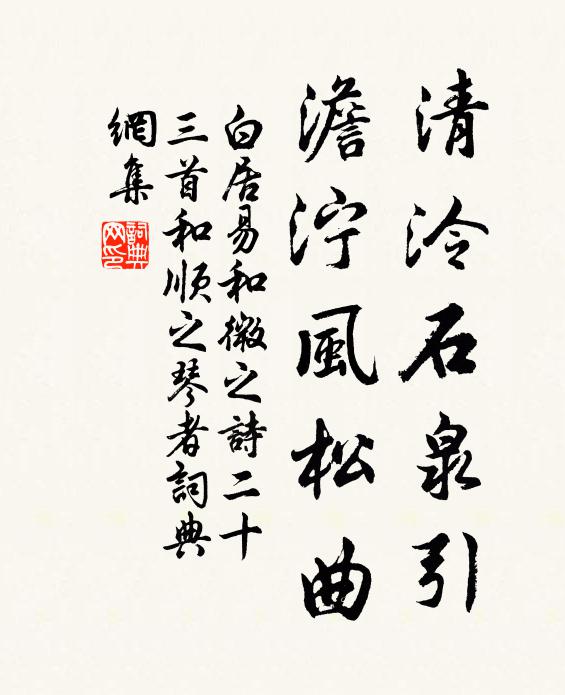 清泠石泉引
澹泞風松曲
白居易和微之詩二十
三首和順之琴者詞典
網集
詞典
网印